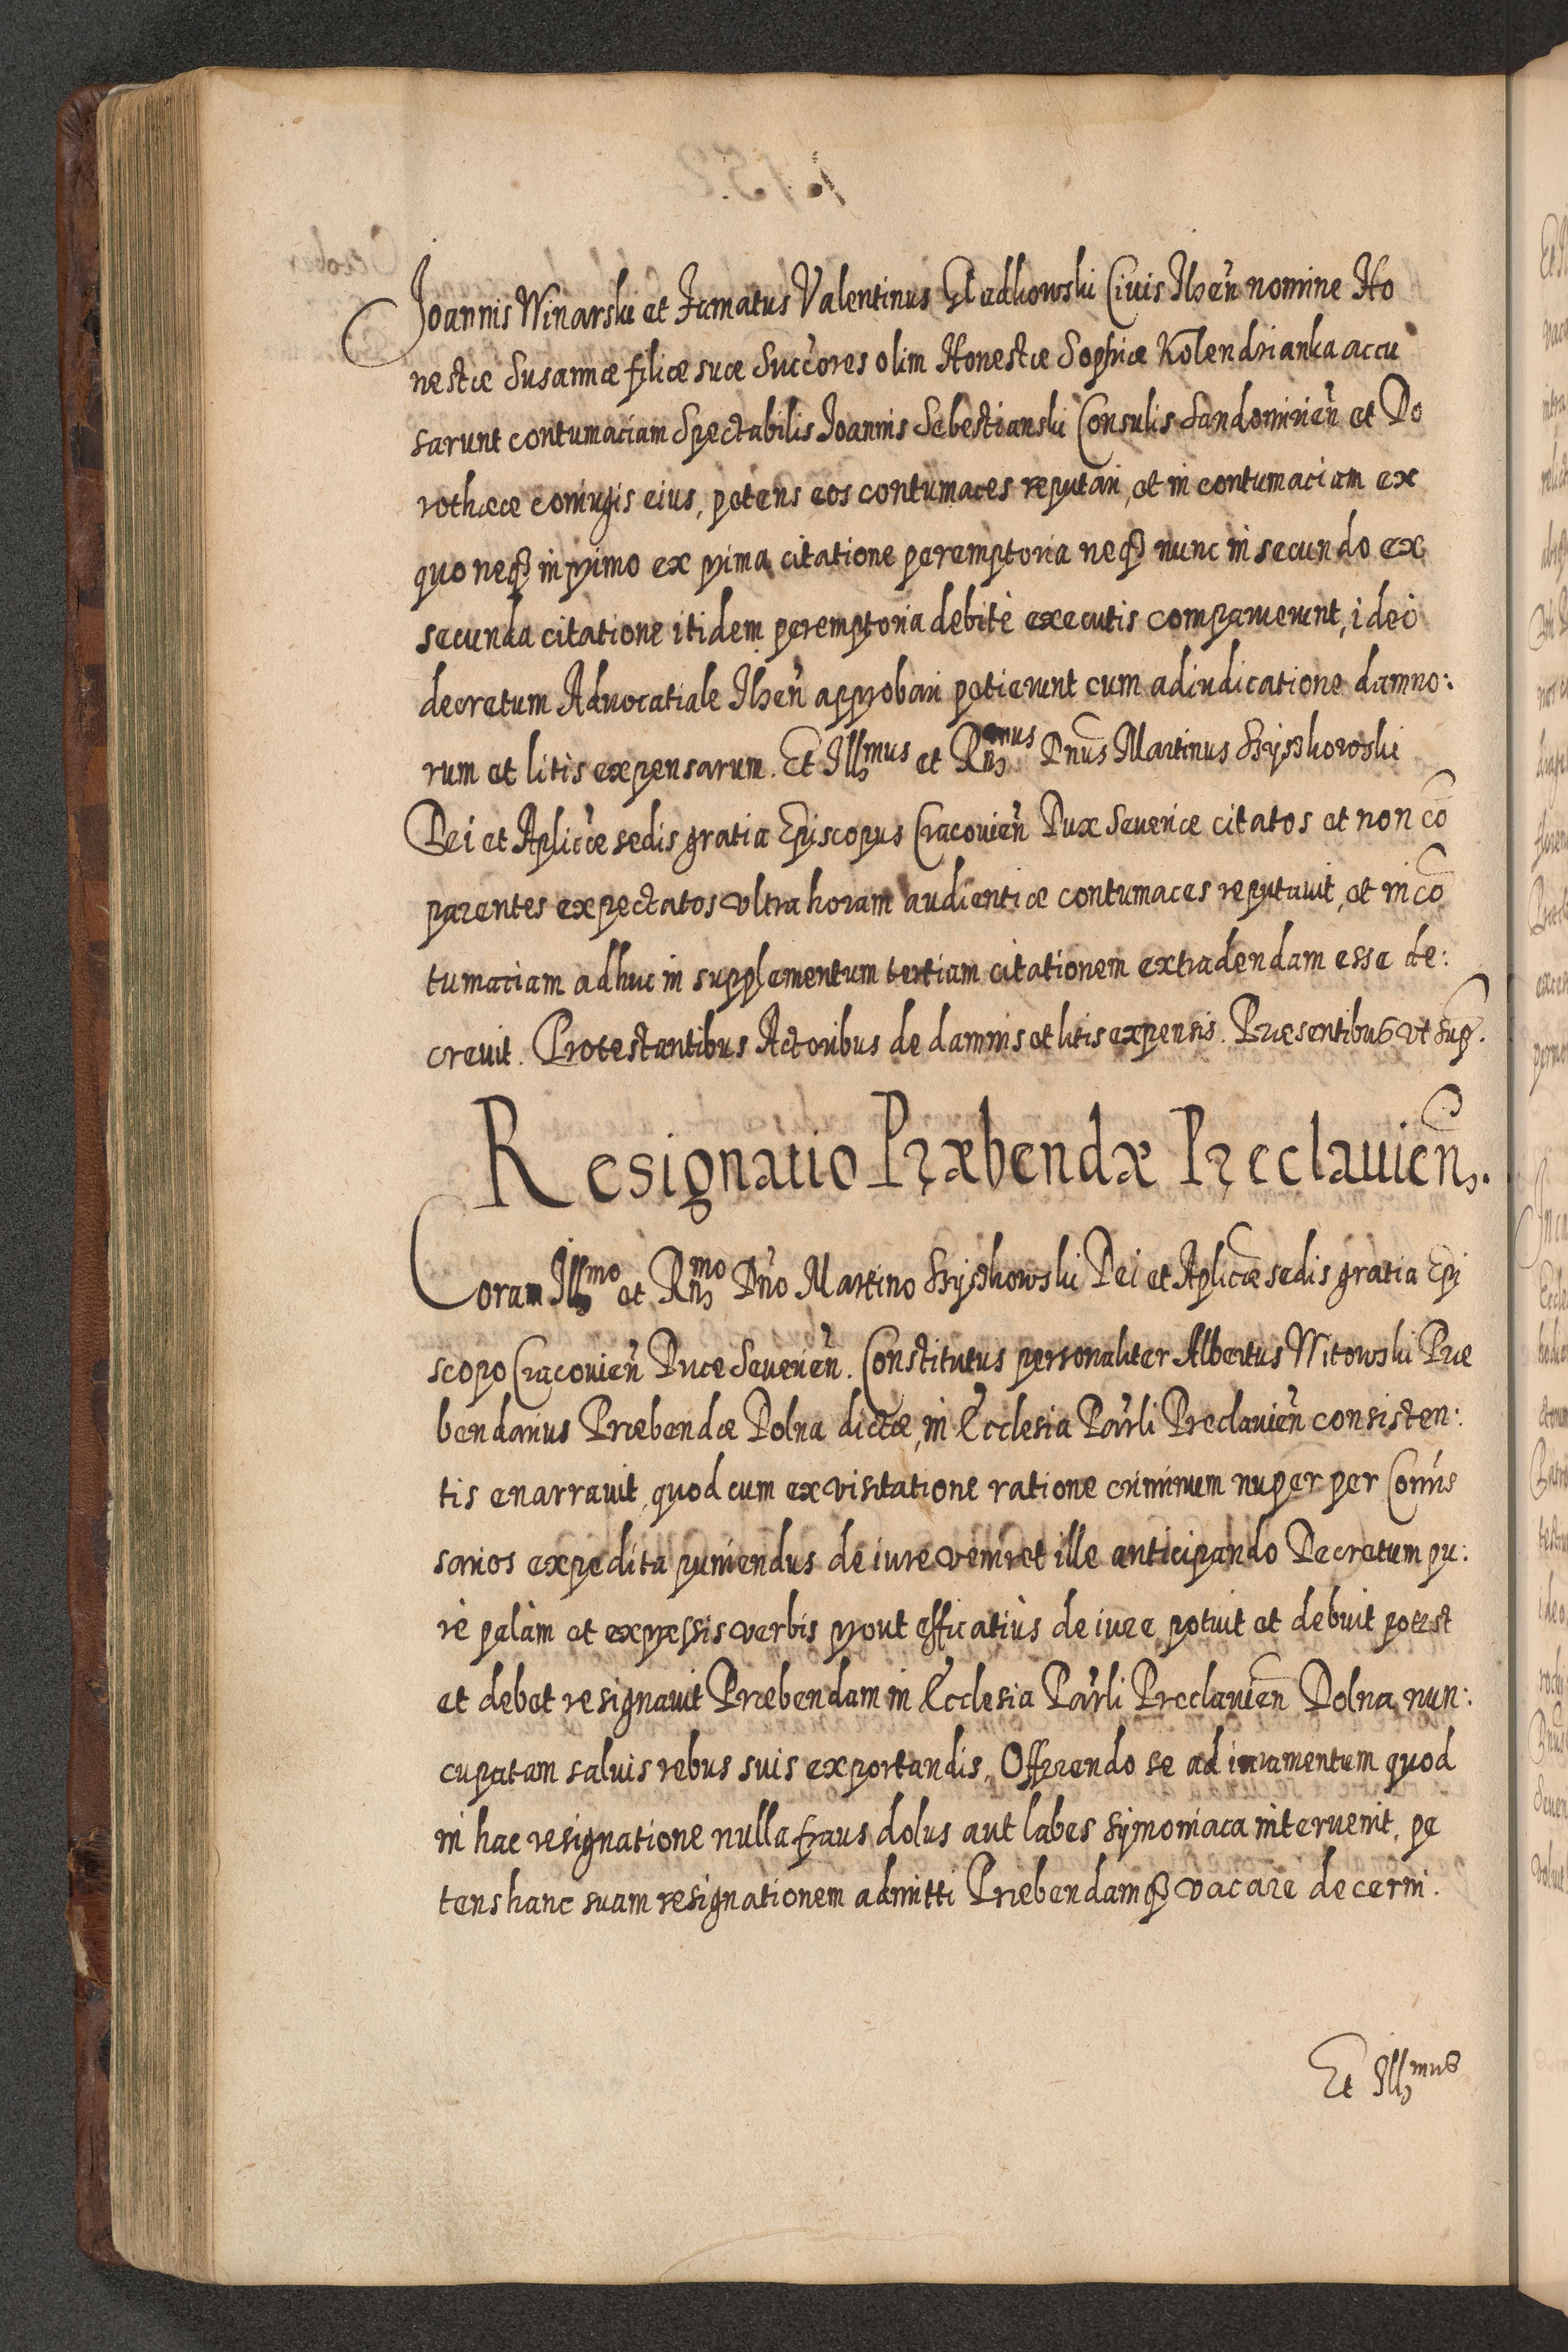 Joannis Winarski et Famatus Valentinus Gladkowski Ciuis Ilzeñ nomine Ho
nestæ Susannæ filiæ suæ Succ̃ores olim Honestæ Sophiæ Kolendrianka accu
sarunt contumaciam Spectabilis Joannis Sebestianski Consulis Sandomirieñ et Do
rothæae coniugis eius, petens eos contumaces reputari, et in contumaciam ex
quo neqȝ in primo ex prima citatione peremptoria neqȝ nunc in secundo ex
secunda citatione itidem peremptoria debitè executis comparuerunt, ideo
decretum Aduocatiale Ilzeñ approbari petierunt cum adiudicatione damno:
rum et litis expensarum. Et Illmus et Rñdmus Dnus Martinus Szyszkowski
Dei et Aplicæ sedis gratia Episcopus Cracouieñ Dux Seueriæ citatos et non cõ
parentes expectatos vltra horam audientiæ contumaces reputauit, et in cõ
tumaciam adhuc in supplementum tertiam citationem extradendam esse de:
creuit. Protestantibus Actoribus de damnis et litis expensis. Præsentibus vt sup.
Resignatio Præbendæ Preclauieñ.
Coram Illmo et Rñmo Dño Martino Szyszkowski Dei et Aplicæ sedis gratia Epi
scopo Cracouieñ Duce Seuerieñ. Constitutus personaliter Albertus Witowski Præ
bendarius Præbendæ Dolna dictæ, in Ecclesia Paŕli Preclauieñ consisten:
tis enarrauit, quod cum ex visitatione ratione criminum nuper per Com̃is
sarios expedita puniendus de iure veniret ille anticipando Decretum pu:
rè palàm et expressis verbis prout efficatiùs de iure potuit et debuit potest
et debet resignauit Præbendam in Ecclesia Paŕli Preclauieñ Dolna nun:
cupatam saluis rebus suis exportandis, Offerendo se ad iuramentum quod
in hac resignatione nulla fraus dolus aut labes symoniaca interuenit, pe
tens hanc suam resignationem admitti Præbendamqȝ vacare decerni.
Et Illmus